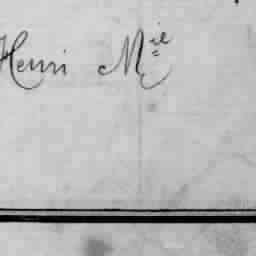 Henri M^el